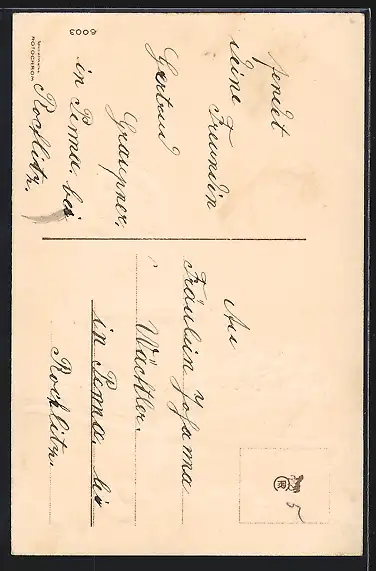 sendet
deine Freundin
Gertrud
Graupner.
in Penna. bei
Rochlitz.
6003
NOTOCHROM
An
Fräulein Johanna
Wächtler.
in Penna. bei
Rochlitz.
5